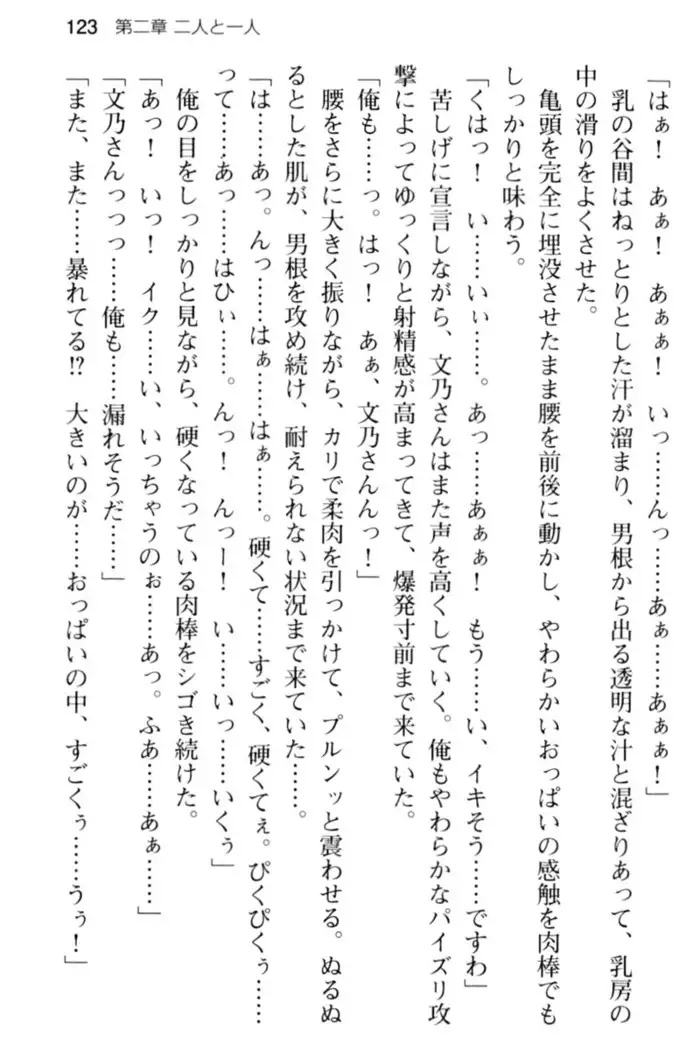 123 第二章 二人と一人
「はぁ！　あぁ！　あぁぁ！　いっ……んっ……あぁ……あぁぁ！」
　乳の谷間はねっとりとした汗が溜まり、男根から出る透明な汁と混ざりあって、乳房の
中の滑りをよくさせた。
　亀頭を完全に埋没させたまま腰を前後に動かし、やわらかいおっぱいの感触を肉棒でも
しっかりと味わう。
「くはっ！　い……いぃ……。あっ……あぁぁ！　もう……い、イキそう……ですわ」
　苦しげに宣言しながら、文乃さんはまた声を高くしていく。俺もやわらかなパイズリ攻
撃によってゆっくりと射精感が高まってきて、爆発寸前まで来ていた。
「俺も……っ。はっ！　あぁ、文乃さんんっ！」
　腰をさらに大きく振りながら、カリで柔肉を引っかけて、プルンッと震わせる。ぬるぬ
るとした肌が、男根を攻め続け、耐えられない状況まで来ていた……。
「は……あっ。んっ……はぁ……はぁ……。硬くて……すごく、硬くてぇ。ぴくぴくぅ……
って……あっ……はひぃ……。んっ！　んっー！　い……いっ……いくぅ」
　俺の目をしっかりと見ながら、硬くなっている肉棒をシゴき続けた。
「あっ！　いっ！　イク……い、いっちゃうのぉ……あっ。ふあ……あぁ……」
「文乃さんっっっ……俺も……漏れそうだ……」
「また、また……暴れてる!?　大きいのが……おっぱいの中、すごくぅ……うぅ！」